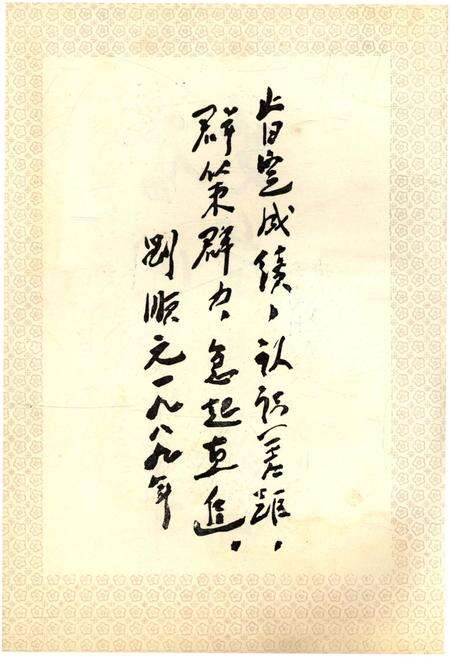 肯定成績，认识差距，
群策群力，急起直追。
劉順元一九八九年